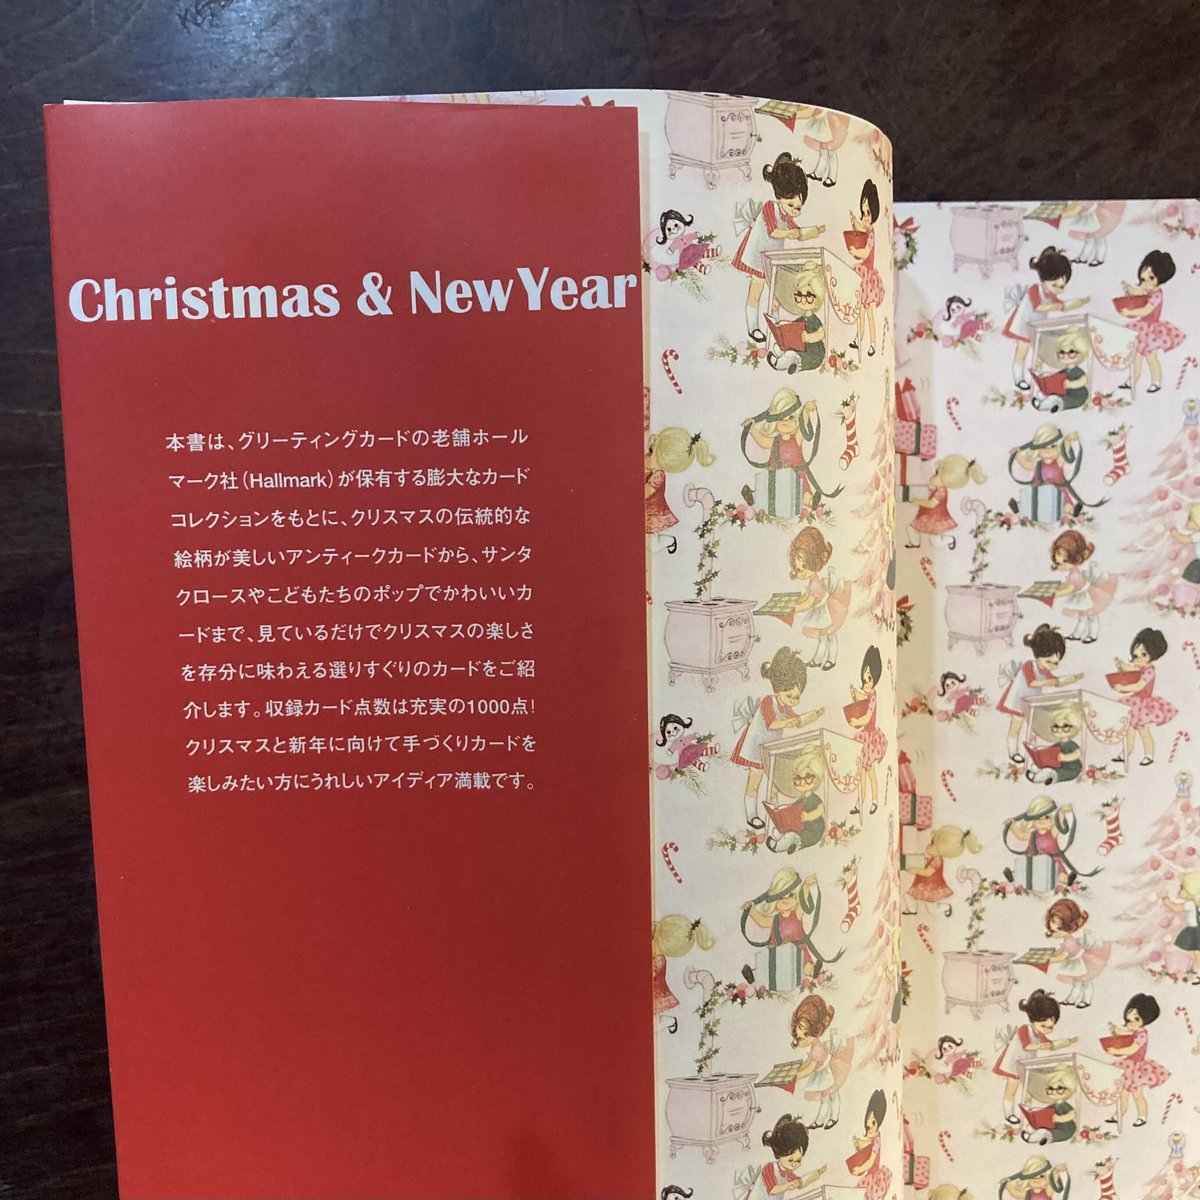 Christmas & New Year
本書は、グリーティングカードの老舗ホール
マーク社（Hallmark）が保有する膨大なカード
コレクションをもとに、クリスマスの伝統的な
絵柄が美しいアンティークカードから、サンタ
クロースやこどもたちのポップでかわいいカ
ードまで、見ているだけでクリスマスの楽しさ
を存分に味わえる選りすぐりのカードをご紹
介します。収録カード点数は充実の1000点！
クリスマスと新年に向けて手づくりカードを
楽しみたい方にうれしいアイディア満載です。